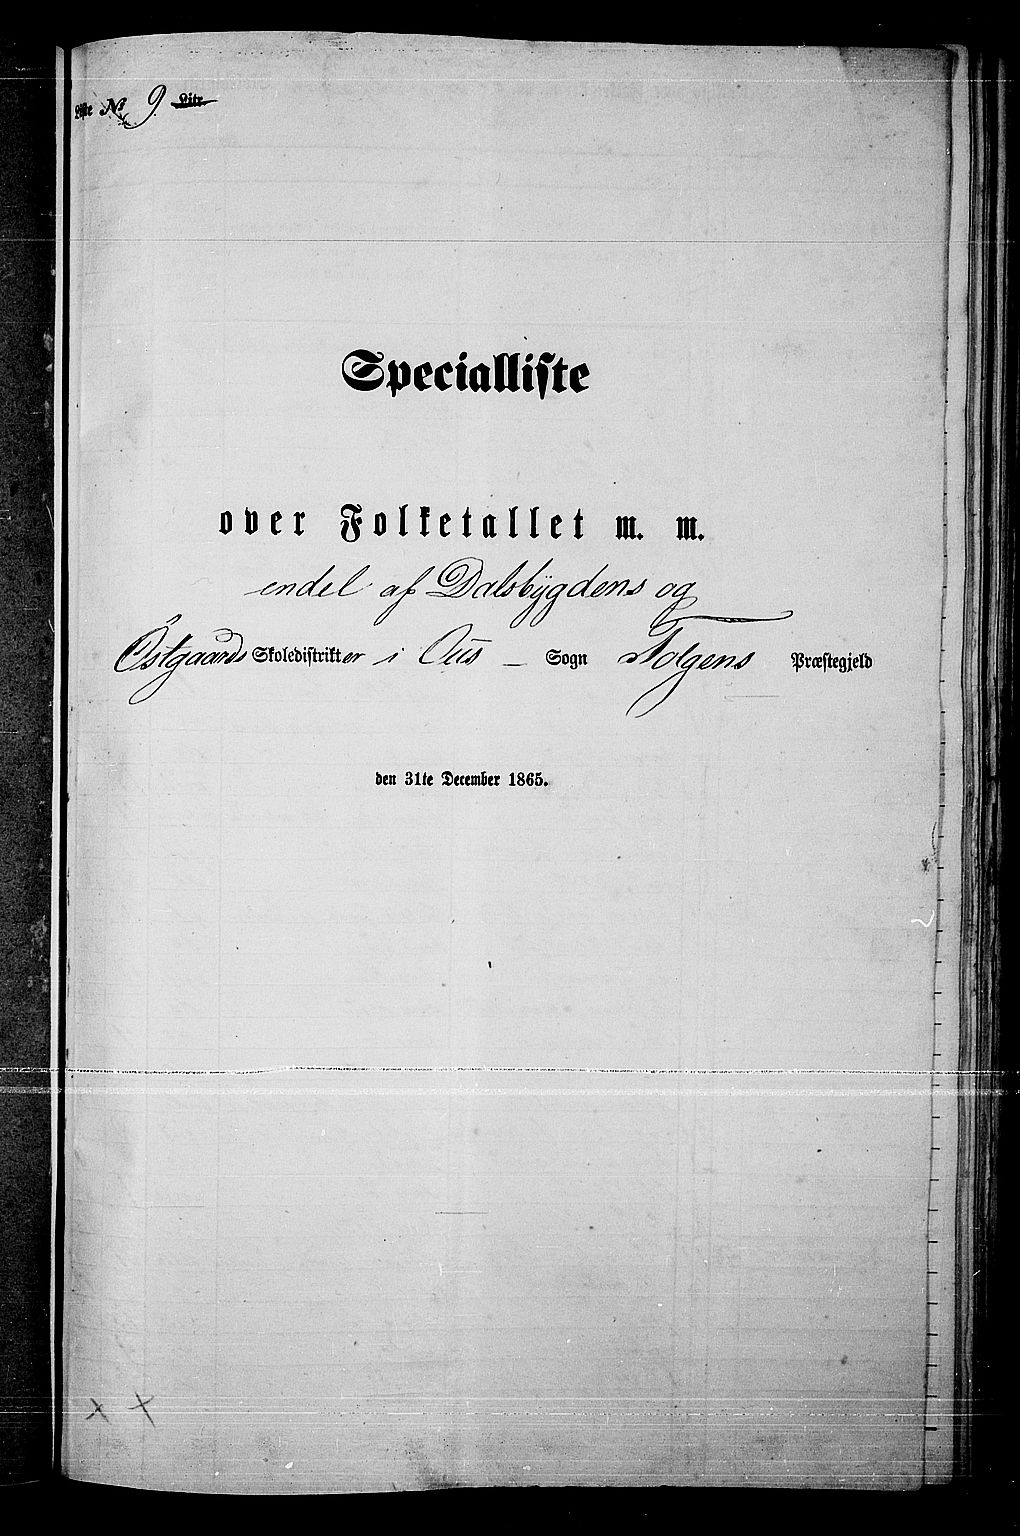 Liste № 9. Litr.
Specialliste
over Folketallet m. m.
endel af Dalsbygdens og
Østgaards Skoledistrikter i Ous – Sogn Tolgens Præstegjeld
den 31te December 1865.